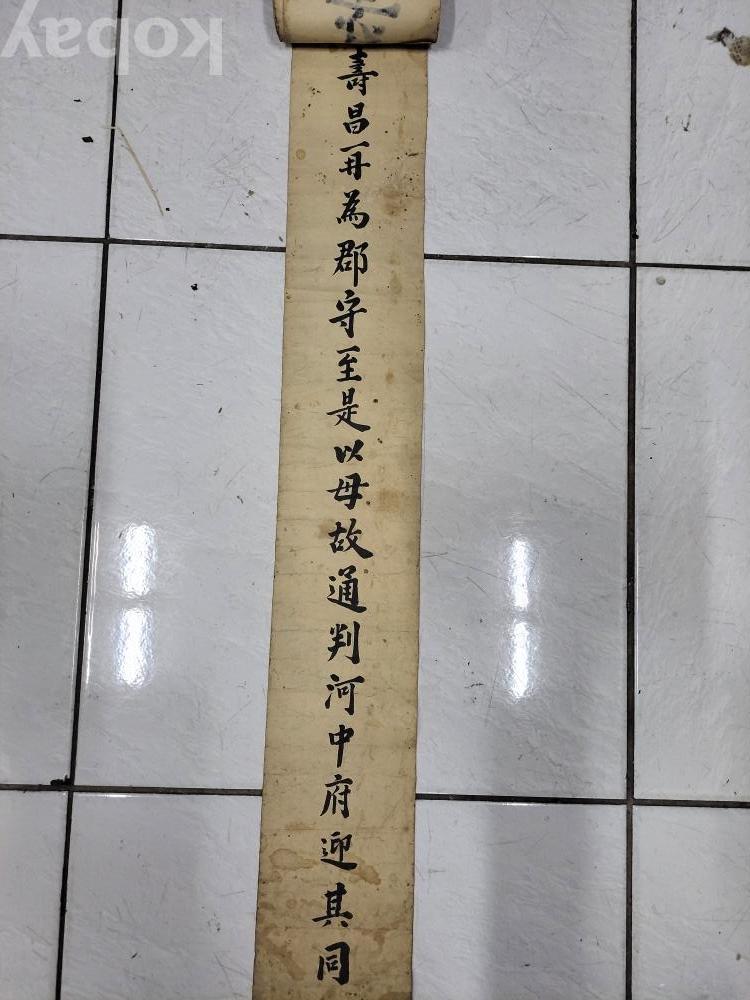 kobay
壽昌再為郡守至是以母故通判河中府迎其同